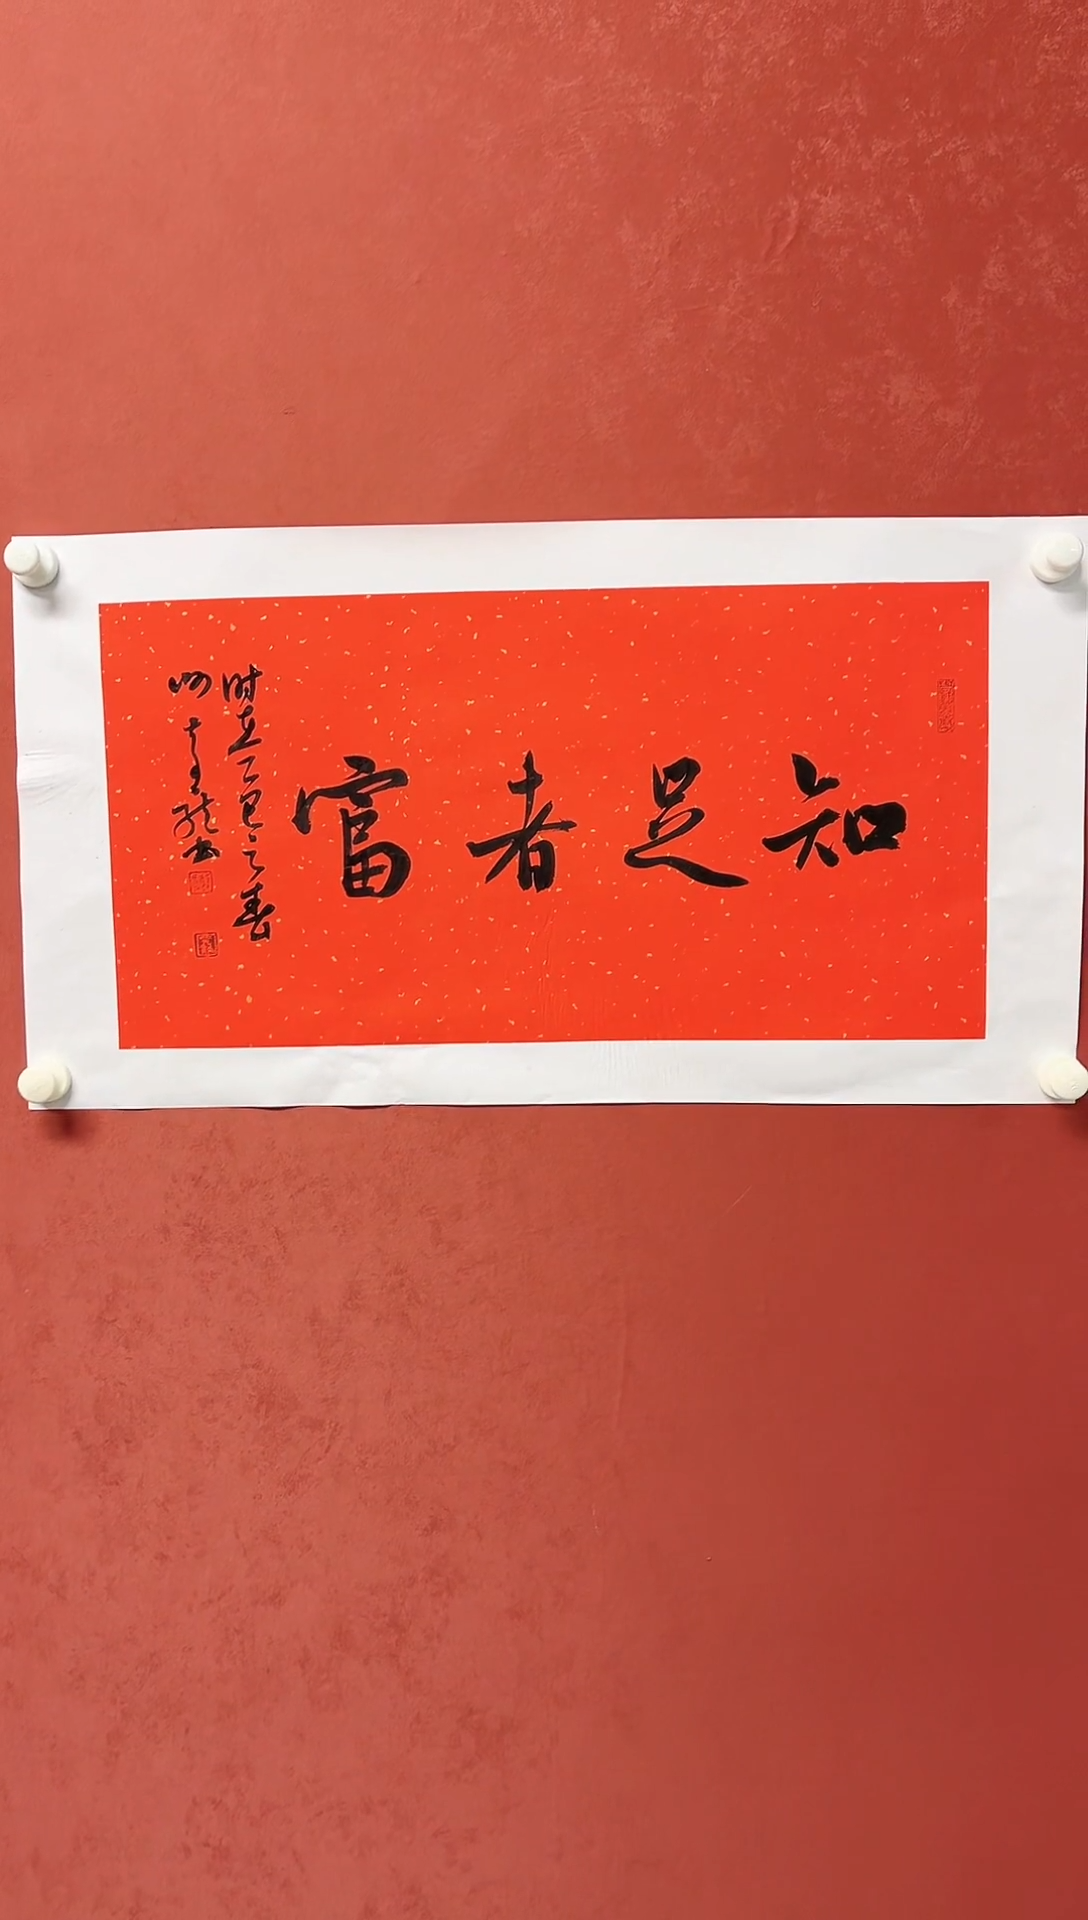 知足者富
时在乙巳之春